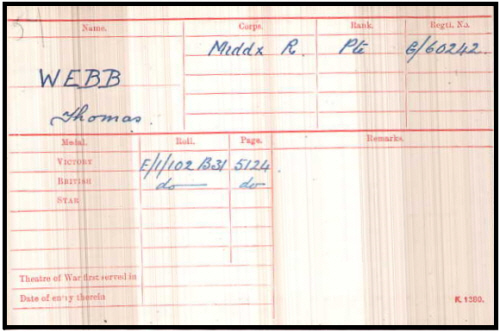 Name. Corps. Rank. Regtl. No.
Middx R. Pte G/60242.
WEBB
Thomas.
Medal. Roll. Page. Remarks.
VICTORY E/1/102 B31 5124
BRITISH do do
STAR
Theatre of War first served in
Date of entry therein
K. 1380.